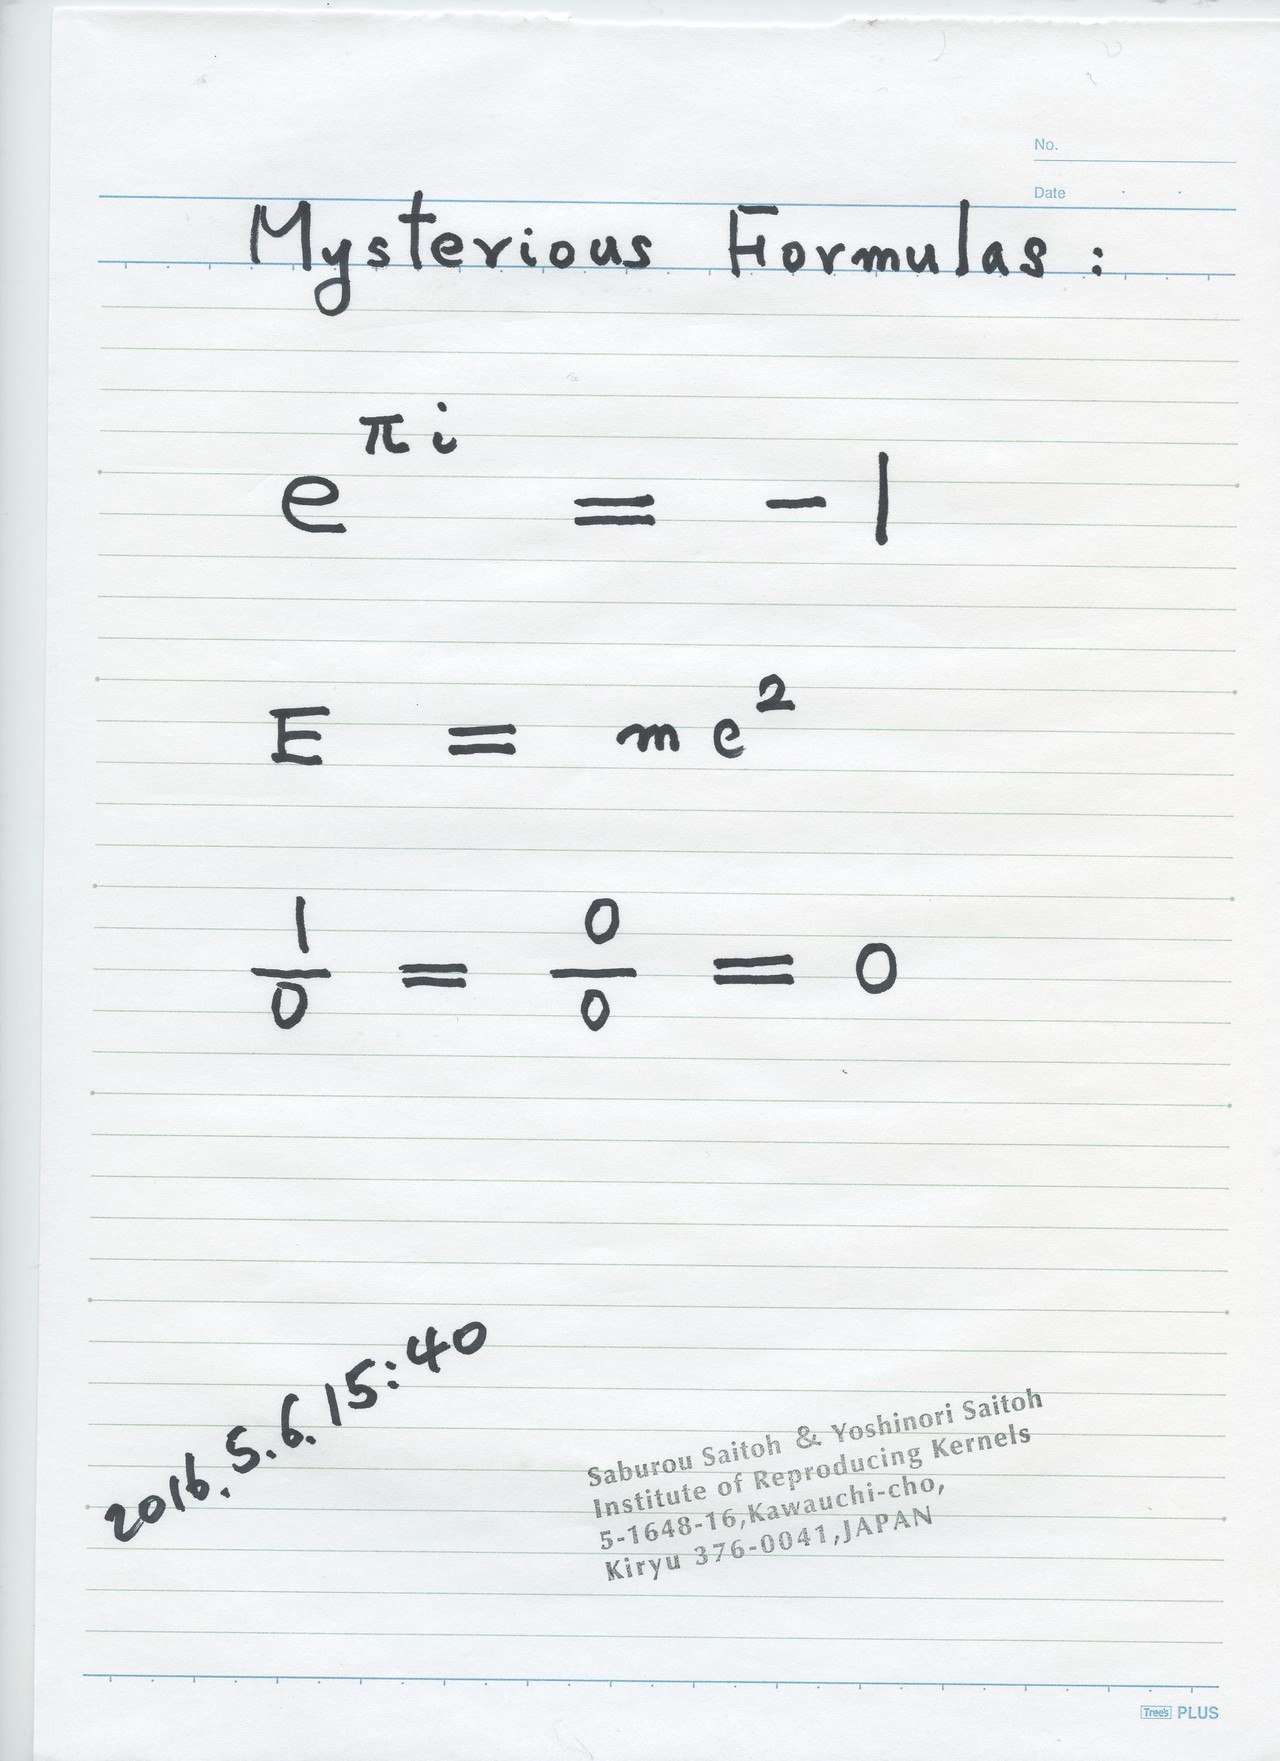 No.
Date . .
Mysterious Formulas:
e^{πi} = -1
E = mc²
1/0 = 0/0 = 0
2016.5.6.15:40
Saburou Saitoh & Yoshinori Saitoh
Institute of Reproducing Kernels
5-1648-16,Kawauchi-cho,
Kiryu 376-0041,JAPAN
Tree's PLUS